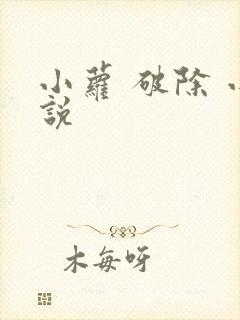 小蘿 破除
說
木每呀